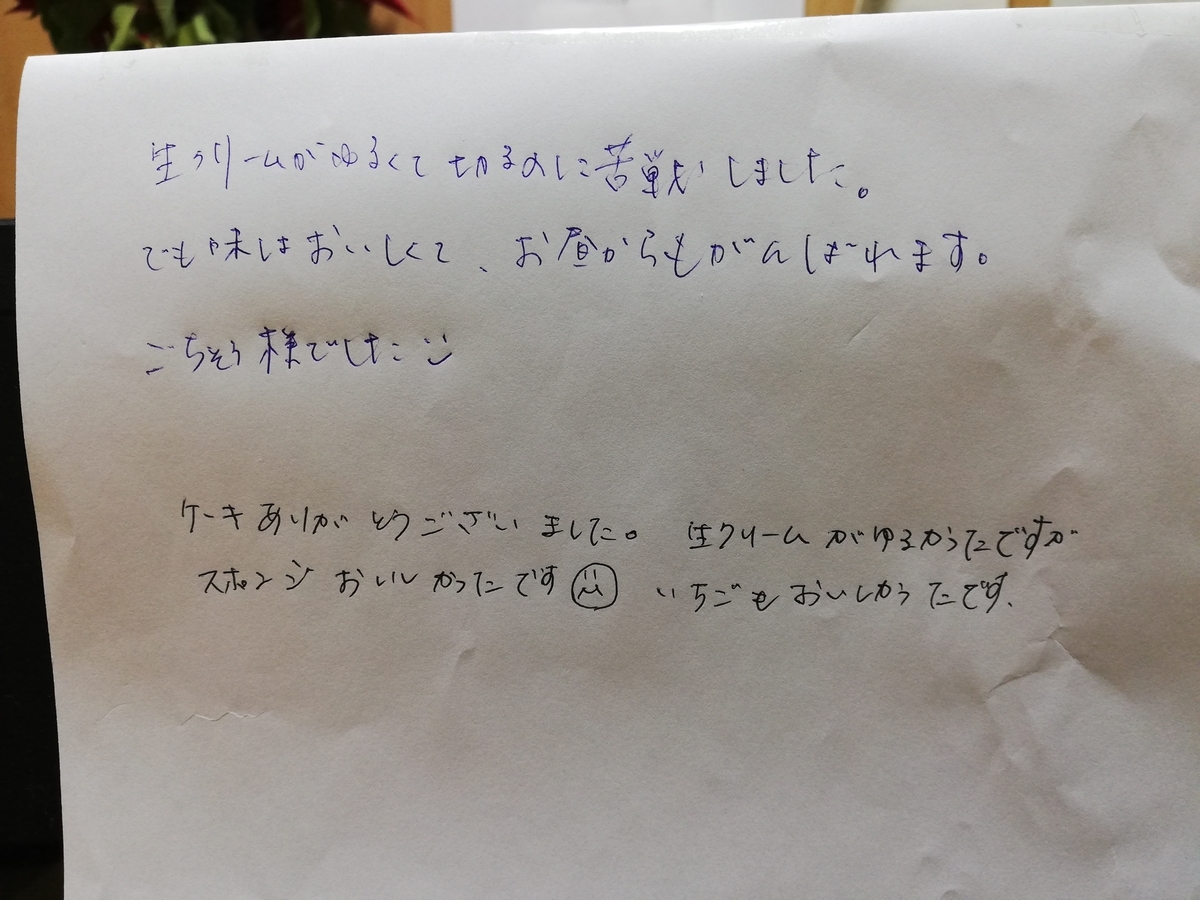 生クリームがゆるくて切るのに苦戦しました。
でも味はおいしくて、お昼からもがんばれます。
ごちそう様でした
ケーキありがとうございました。 生クリームがゆるかったですが
スポンジおいしかったです いちごもおいしかったです.